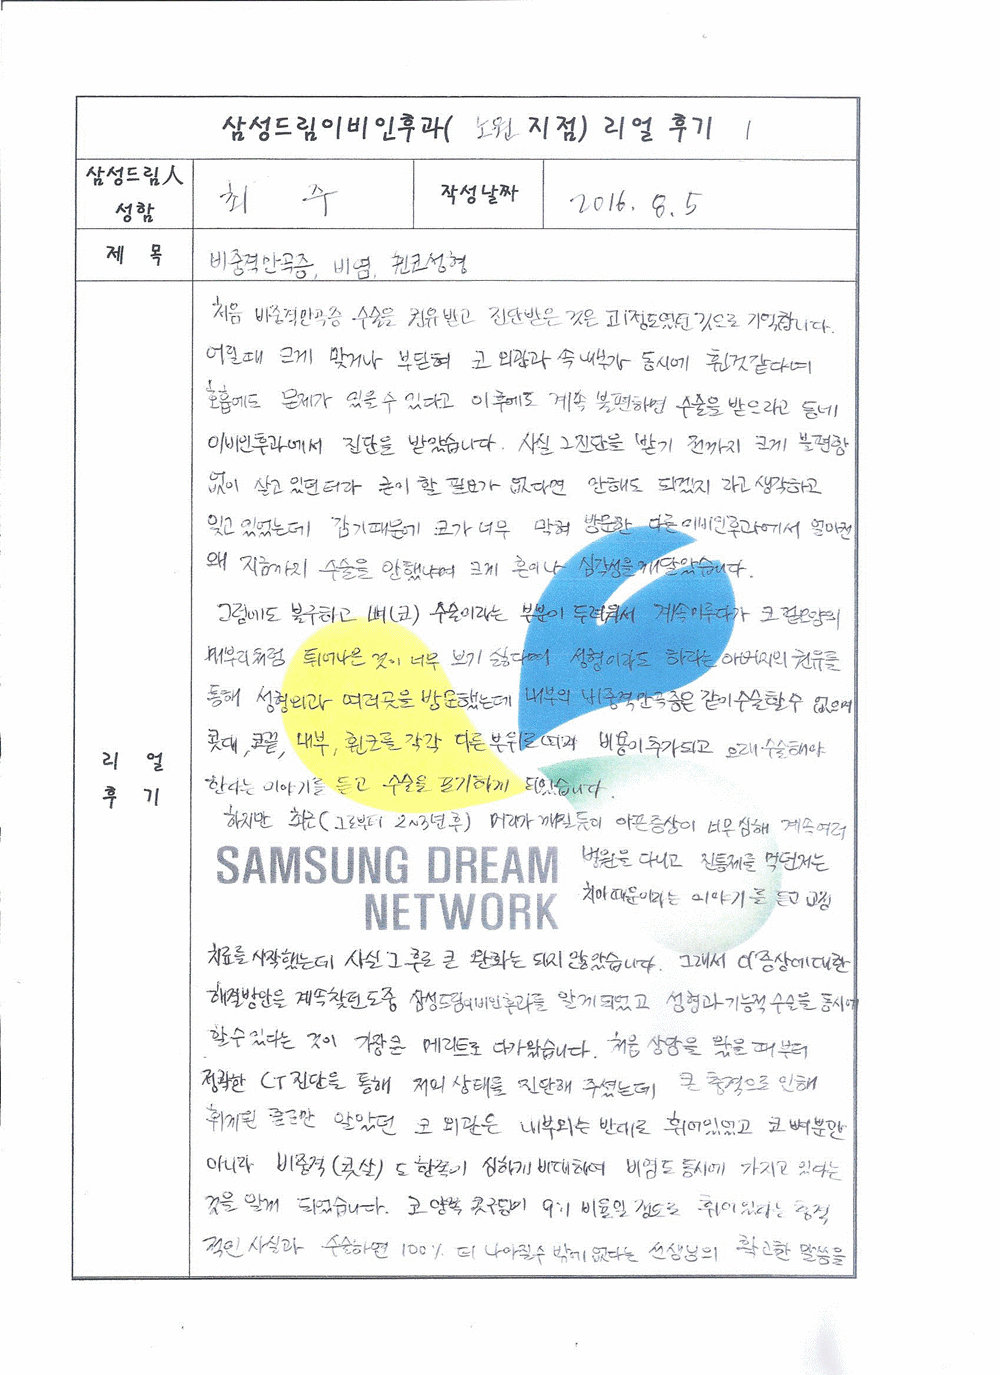 삼성드림이비인후과( 노원 지점) 리얼 후기 1
삼성드림人 성함
최 수
작성날짜
2016. 8. 5
제 목
비중격만곡증, 비염, 휜코성형
리 얼 후 기
처음 비중격만곡증 수술을 권유받고 진단받은 것은 고1정도였던 것으로 기억합니다.
어릴때 크게 맞거나 부딪혀 코 외관과 속 내부가 동시에 휜것같다며
호흡에도 문제가 있을수 있다고 이후에도 계속 불편하면 수술을 받으라고 동네
이비인후과에서 진단을 받았습니다. 사실 그진단을 받기 전까지 크게 불편함
없이 살고 있던터라 굳이 할 필요가 없다면 안해도 되겠지 라고 생각하고
잊고 있었는데 감기때문에 코가 너무 막혀 방문한 다른 이비인후과에서 얼마전
왜 지금까지 수술을 안했냐며 크게 혼이나 심각성을 깨달았습니다.
그럼에도 불구하고 뼈(코) 수술이라는 부분이 두려워서 계속미루다가 코 옆모양의
매부리처럼 튀어나온 것이 너무 보기 싫다며 성형이라도 하라는 아버지의 권유를
통해 성형외과 여러곳을 방문했는데 내부의 비중격만곡증은 같이수술할수 없으며
콧대, 코끝, 내부, 휜코를 각각 다른 부위로 따라 비용이추가되고 오래 수술해야
한다는 이야기를 듣고 수술을 포기하게 되었습니다.
하지만 최근(그로부터 2~3년후) 머리가 깨질듯이 아픈증상이 너무 심해 계속 여러
병원을 다니고 진통제를 먹던저는
SAMSUNG DREAM
NETWORK
치아때문이라는 이야기를 듣고 교정
치료를 시작했는데 사실 그 후로 큰 완화는 되지 않았습니다. 그래서 이 증상에 대한
해결방안을 계속찾던도중 삼성드림이비인후과를 알게되었고 성형과 기능적 수술을 동시에
할수있다는 것이 가장큰 메리트로 다가왔습니다. 처음 상담을 왔을 때부터
정확한 CT 진단을 통해 저의 상태를 진단해 주셨는데 큰 충격으로 인해
휘게된 줄로만 알았던 코 외관은 내부와는 반대로 휘어있었고 코 뼈뿐만
아니라 비중격(콧살)도 한쪽이 심하게 비대하여 비염도 동시에 가지고 있다는
것을 알게 되었습니다. 코 양쪽 콧구멍이 9:1 비율일 정도로 휘어있다는 충격
적인 사실과 수술하면 100% 더 나아질수 밖에 없다는 선생님의 확고한 말씀을